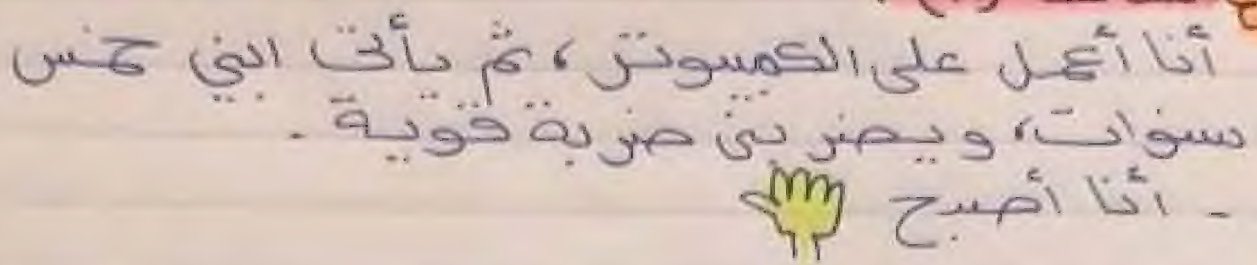 أنا أعمل على الكمبيوتر، ثم يأتي ابني خمس
سنوات، ويضربني ضربة قوية.
- أنا أصبح